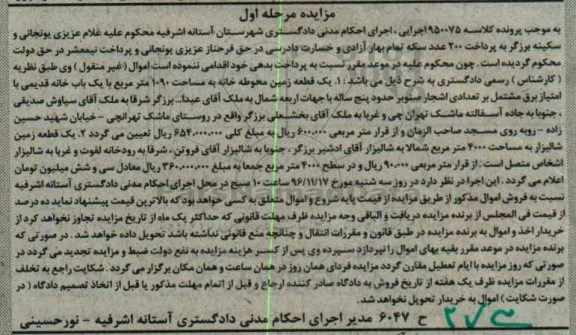 مزایده مرحله اول
به موجب پرونده کلاسه ۹۵۰۰۷۵ اجرایی ، اجرای احکام مدنی دادگستری شهرستان آستانه اشرفیه محکوم علیه غلام عزیزی یونجانی و
سکینه برزگر به پرداخت ۲۰۰ عدد سکه تمام بهار آزادی و خسارت دادرسی در حق فرحناز عزیزی یونجانی و پرداخت نیمعشر در حق دولت
محکوم گردیده است . چون محکوم علیه در موعد مقرر نسبت به پرداخت بدهی خود اقدامی ننموده است اموال ( غیر منقول ) وی طبق نظریه
( کارشناس ) رسمی دادگستری به شرح ذیل می باشد : ۱. یک قطعه زمین محوطه خانه به مساحت ۱۰۹۰ متر مربع با یک باب خانه قدیمی با
امتیاز برق مشتمل بر تعدادی اشجار صنوبر حدود پنج ساله با جهات اربعه شمال به ملک آقای عبدا... برزگر شرقا به ملک آقای سیاوش صدیقی
، جنوبا به جاده آسفالته ماشک تهران چی و غربا به ملک آقای بخشعلی برزگر واقع در روستای ماشک تهرانچی - خیابان شهید حسین
زاده - روبه روی مسجد صاحب الزمان و از قرار متر مربعی ۶۰۰,۰۰۰ ریال به مبلغ کلی ۶۵۴,۰۰۰,۰۰۰ ریال تعیین می گردد ۲. یک قطعه زمین
شالیزار به مساحت ۴۰۰۰ متر مربع شمالا به شالیزار آقای ادشیر برزگر ، جنوبا به شالیزار آقای فروتن ، شرقا به رودخانه لفوت و غربا به شالیزار
اشخاص متصل است . از قرار متر مربعی ۹۰,۰۰۰ ریال و در سطح ۴۰۰۰ متر مربع جمعا به مبلغ ۳۶۰,۰۰۰,۰۰۰ ریال معادل سی و شش میلیون تومان
اعلام می گردد . این اجرا در نظر دارد در روز سه شنبه مورخ ۹۶/۱۱/۱۷ ساعت ۱۰ صبح در محل اجرای احکام مدنی دادگستری آستانه اشرفیه
نسبت به فروش اموال مذکور از طریق مزایده از قیمت پایه شروع و اموال متعلق به کسی خواهد بود که بالاترین قیمت پیشنهاد نماید ده درصد
از قیمت فی المجلس از برنده مزایده دریافت و الباقی وجه مزایده ظرف مهلت قانونی که حداکثر یک ماه از تاریخ مزایده تجاوز نخواهد کرد از
خریدار اخذ و اموال به برنده مزایده در طبق قانون و مقررات انتقال و چنانچه منع قانونی نداشته باشد تحویل داده خواهد شد . در صورتی که
برنده مزایده در موعد مقرر بقیه بهای اموال را نپردازد سپرده وی پس از کسر هزینه مزایده به نفع دولت ضبط و مزایده تجدید می گردد در
صورتی که روز مزایده با ایام تعطیل مقارن گردد مزایده فردای همان روز در همان ساعت و همان مکان برگزار می گردد . شکایت راجع به تخلف
از مقررات مزایده ظرف یک هفته از تاریخ فروش به دادگاه صادر کننده ارجاع و قبل از اتمام مهلت مذکور یا قبل از اتخاذ تصمیم دادگاه ( در
صورت شکایت ) اموال به خریدار تحویل نخواهد شد.
ح ۶۰۴۷ مدیر اجرای احکام مدنی دادگستری آستانه اشرفیه - نورحسینی